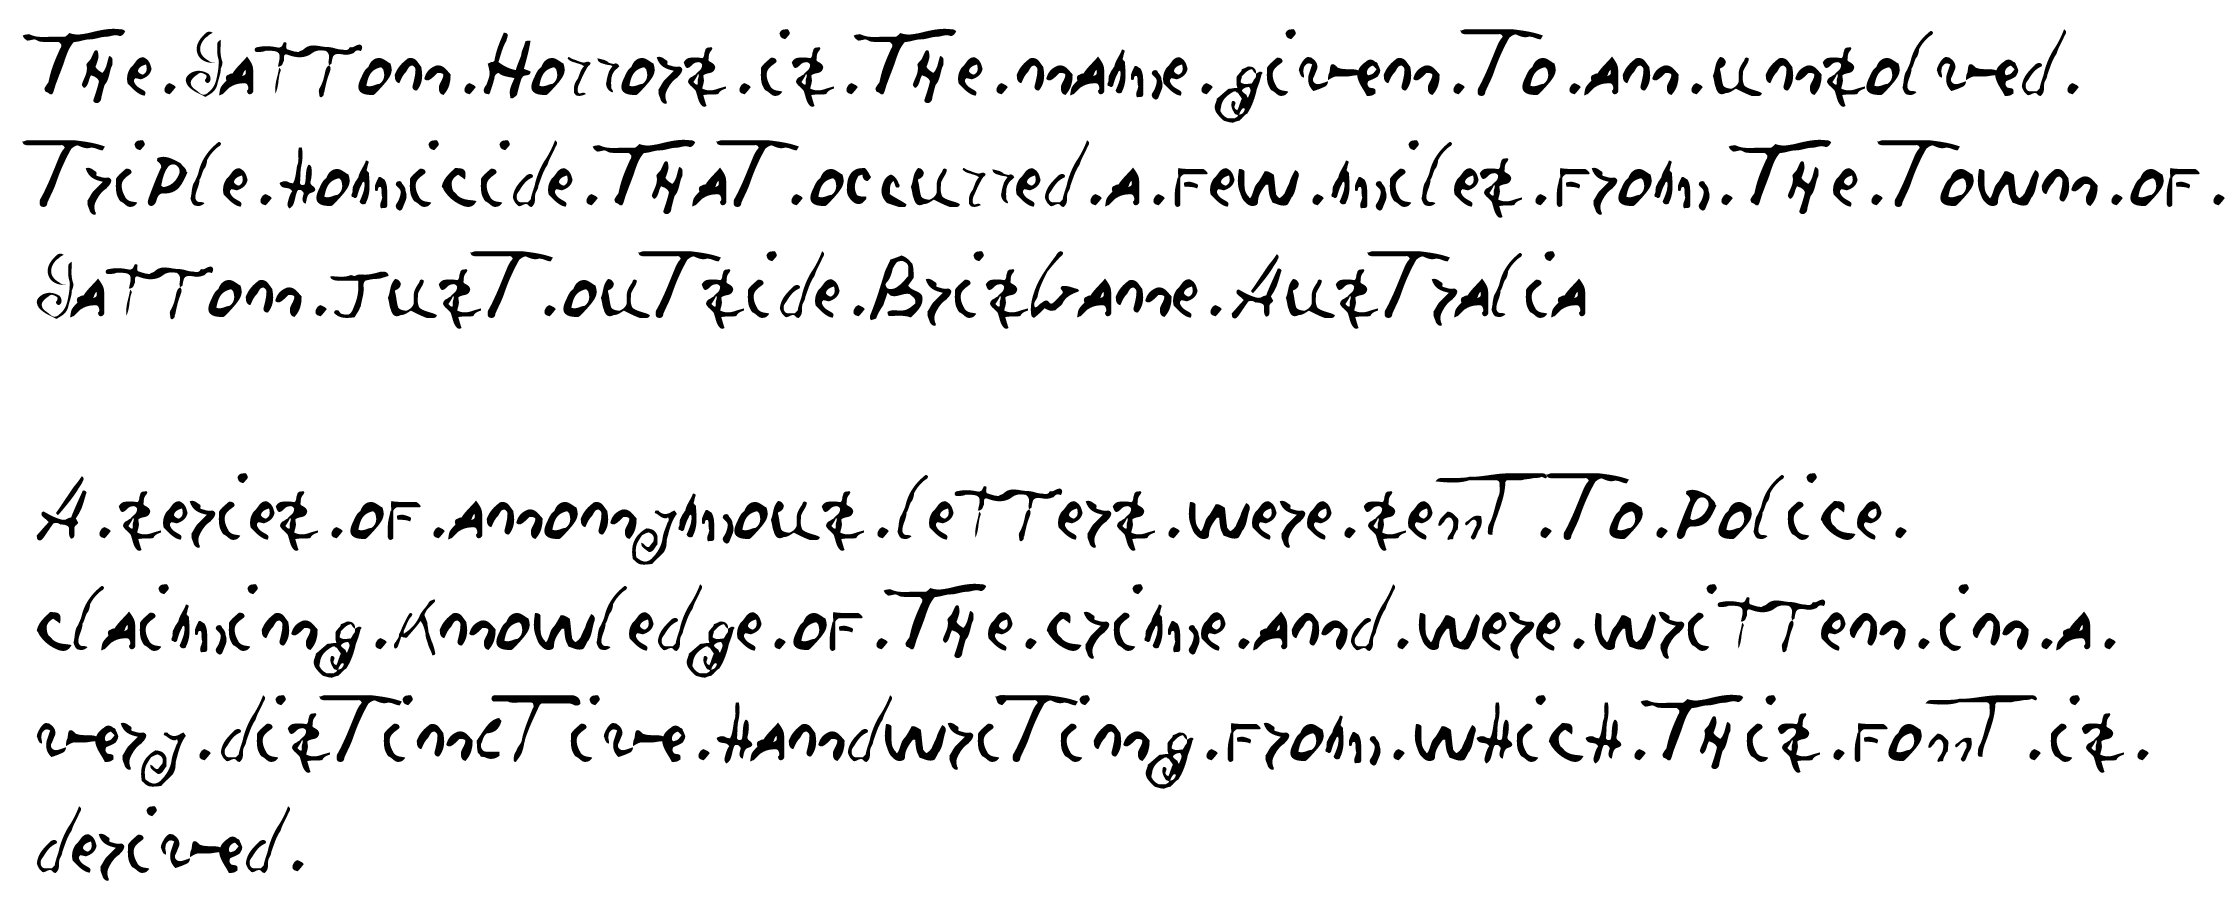 The.Gatton.Horrors.is.The.name.given.To.an.unsolved.
Triple.homicide.ThaT.occurred.a.few.miles.from.The.Town.of.
Gatton.jusT.ouTside.Brisbane.AusTralia
A.series.of.anonymous.letters.were.senT.To.police.
claiming.knowledge.of.The.crime.and.were.written.in.a.
very.disTincTive.handwriTing.from.which.This.fonT.is.
derived.